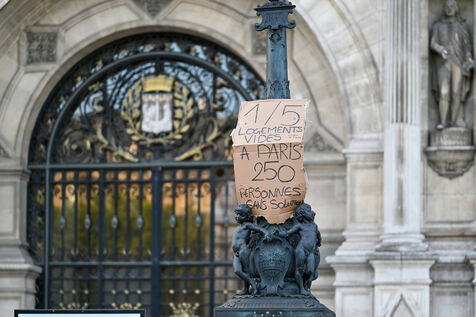 1/5
LOGEMENTS
VIDES
A PARIS
250
PERSONNES
SANS Solution